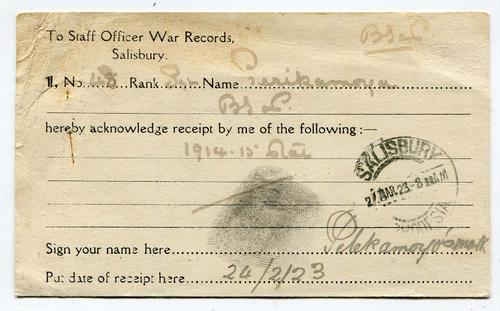 To Staff Officer War Records,
Salisbury.
B S a P
I, No. 48 Rank Name
B S a P
hereby acknowledge receipt by me of the following :—
1914-15 Star
SALISBURY
27 MAR 23 - 8
RHODESIA
Sign your name here mark
Put date of receipt here 24/2/23